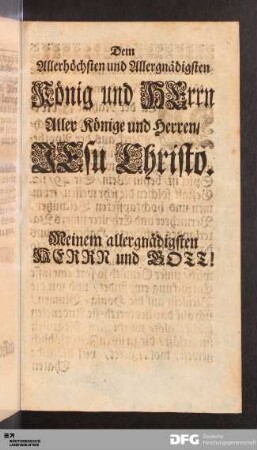 Dem
Allerhöchsten und Allergnädigsten
König und HErrn
Aller Könige und Herren/
JEsu Christo.
Meinem allergnädigsten
HERRN und GOTT!
DFG
Deutsche
Forschungsgemeinschaft